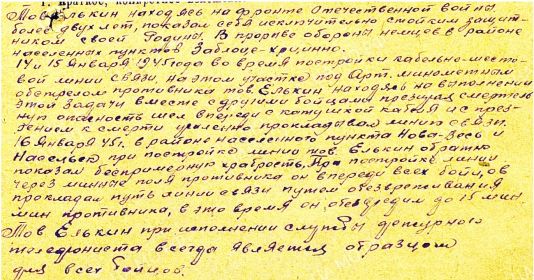 1. Краткое, конкретное
Тов. Елькин находясь на фронте Отечественной войны
более двух лет, показал себя исключительно стойким защит-
ником своей Родины. В прорыве обороны немцев в районе
населенных пунктов Заблоце-
14 и 15 января 1945 года во время постройки кабельно-шесто-
вой линии связи, на этом участке под Арт. минометным
обстрелом противника тов. Елькин находясь на выполнении
этой задачи вместе с другими бойцами презирая смертель-
ную опасность шел впереди с катушкой кабеля и с през-
рением к смерти успешно прокладывал линию связи.
16 января 45 г. в районе населенного пункта Нова-Весь и
Насельск при постройке линии тов. Елькин обратно
показал беспримерную храбрость. При постройке линии
через минные поля противника он впереди всех бойцов
прокладал путь линии связи путем обезвреживания
мин противника, в это время он обезвредил до 15 мин.
Тов Елькин при исполнении службы дежурного
телефониста всегда является образцом
для всех бойцов.